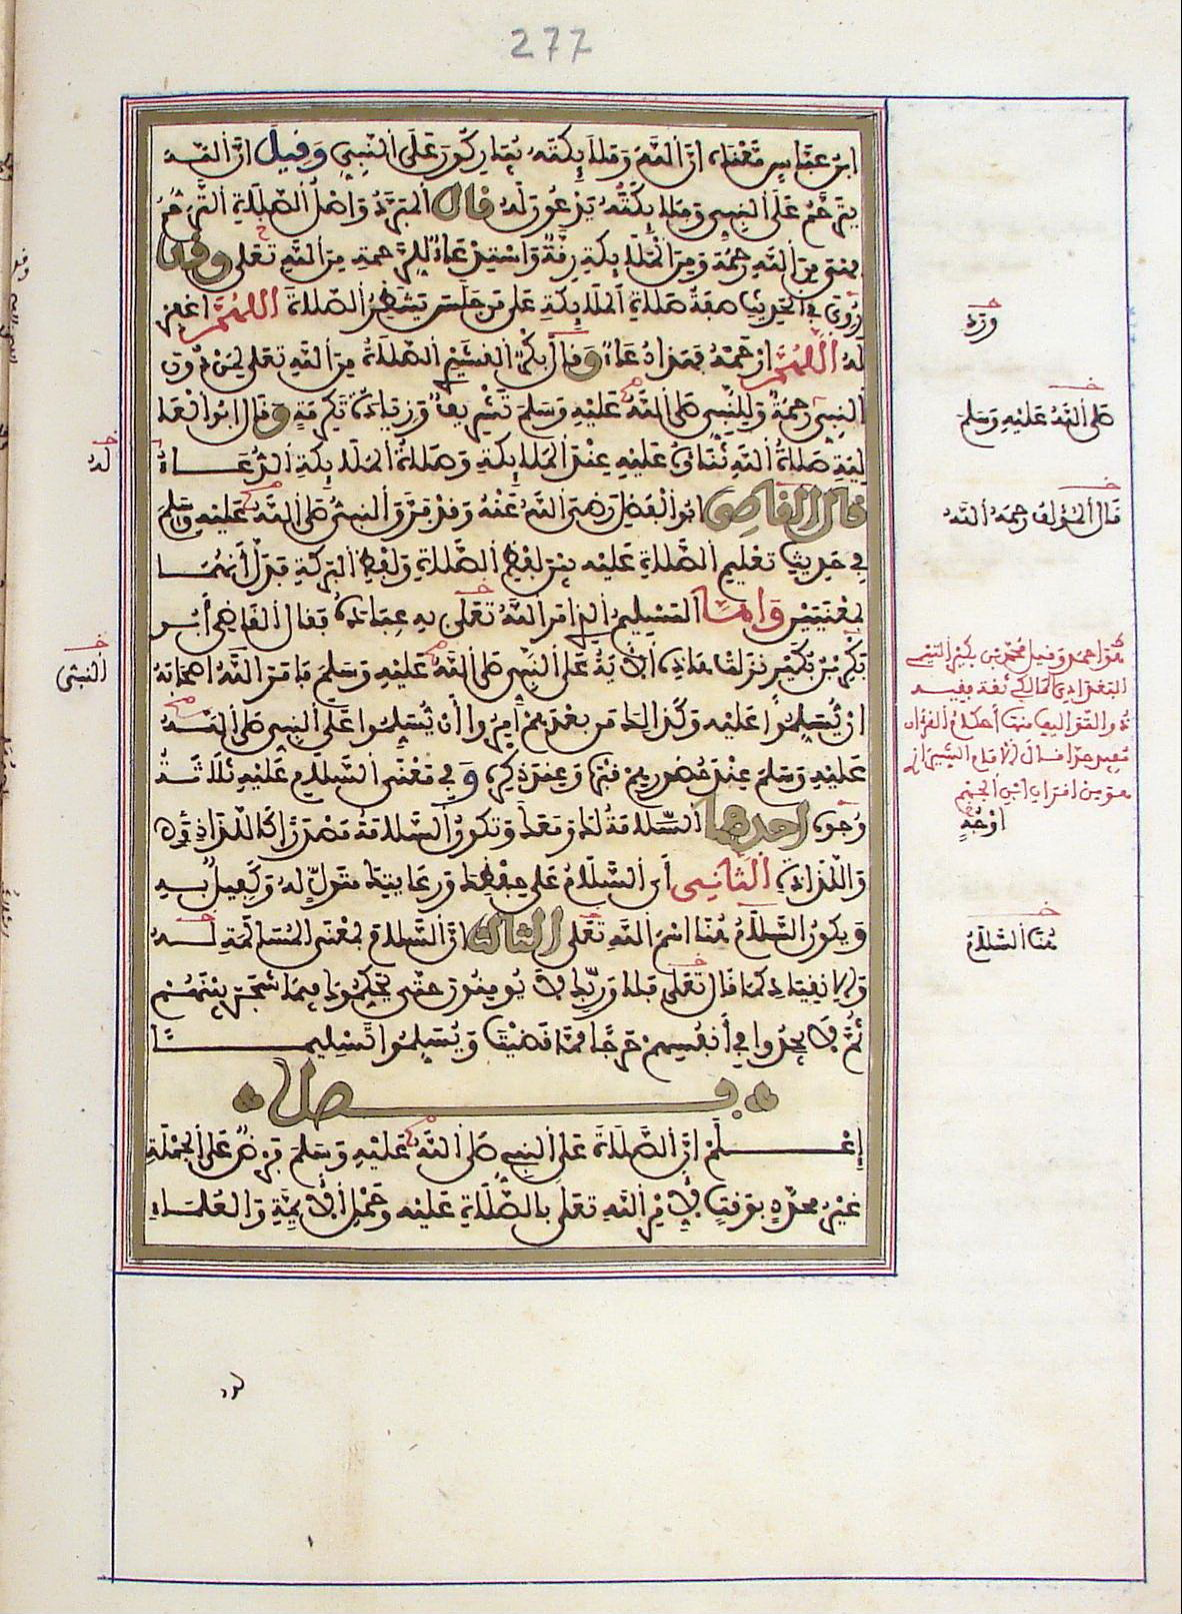 277
ابن عباس معناه أن الله وملائكته يباركون على النبي وقيل ان الله
يترحم على النبي وملائكته يدعون له قال المبرد وأصل الصلاة الترحم
فهي من الله رحمة ومن الملائكة رقة واستدعاء للرحمة من الله تعلى وقد
روي في الحديث صفة صلاة الملائكة على من جلس ينتظر الصلاة اللهم اغفر
له اللهم ارحمه فهذا دعاء وقال بكر القشيري الصلاة من الله تعلى لمن دون
النبي رحمة وللنبي صلى الله عليه وسلم تشريف وزيادة تكرمة وقال ابوا لعا
لية صلاة الله ثناؤه عليه عند الملائكة وصلاة الملائكة الدعاء
قال القاضي ابوا الفضل رضي الله عنه وقد فرق النبي صلى الله عليه وسلم
في حديث تعليم الصلاة عليه بين لفظ الصلاة ولفظ البركة فدل أنهما
بمعنيين وأما التسليم الذي امر الله تعلى به عباده فقال القاضي أبو
بكر بن بكير نزلت هاذه الآية على النبي صلى الله عليه وسلم فامر الله اصحابه
ان يسلموا عليه وكذالك من بعدهم أمروا أن يسلموا على النبي صلى الله
عليه وسلم عند حضورهم قبره وعند ذكره وفي معنى السلام عليه ثلاثة
وجوه احدها السلامة لك ومعك وتكون السلامة مصدرا كاللذاذ
واللذاذة الثاني أي السلام على حفظك ورعايتك متول له وكفيل به
ويكون السلام هنا اسم الله تعلى الثالث ان السلام بمعنى المسالمة له
والانقياد كما قال تعلى فلا وربك لا يومنون حتى يحكموك فيما شجر بينهم
ثم لا يجدوا في أنفسهم حرجا مما قضيت ويسلموا تسليما
فصل
إعلم ان الصلاة على النبي صلى الله عليه وسلم فرض على الجملة
غير محدد بوقت لأمر الله تعلى بالصلاة عليه وحمل الأئمة والعلماء
ورد
صلى الله عليه وسلم
قال المؤلف رحمه الله
هو احمد وقيل محمد بن بكير التميمي
البغدادي المالكي ثقة فقيه
اوجه
هنا السلام
له
النبي